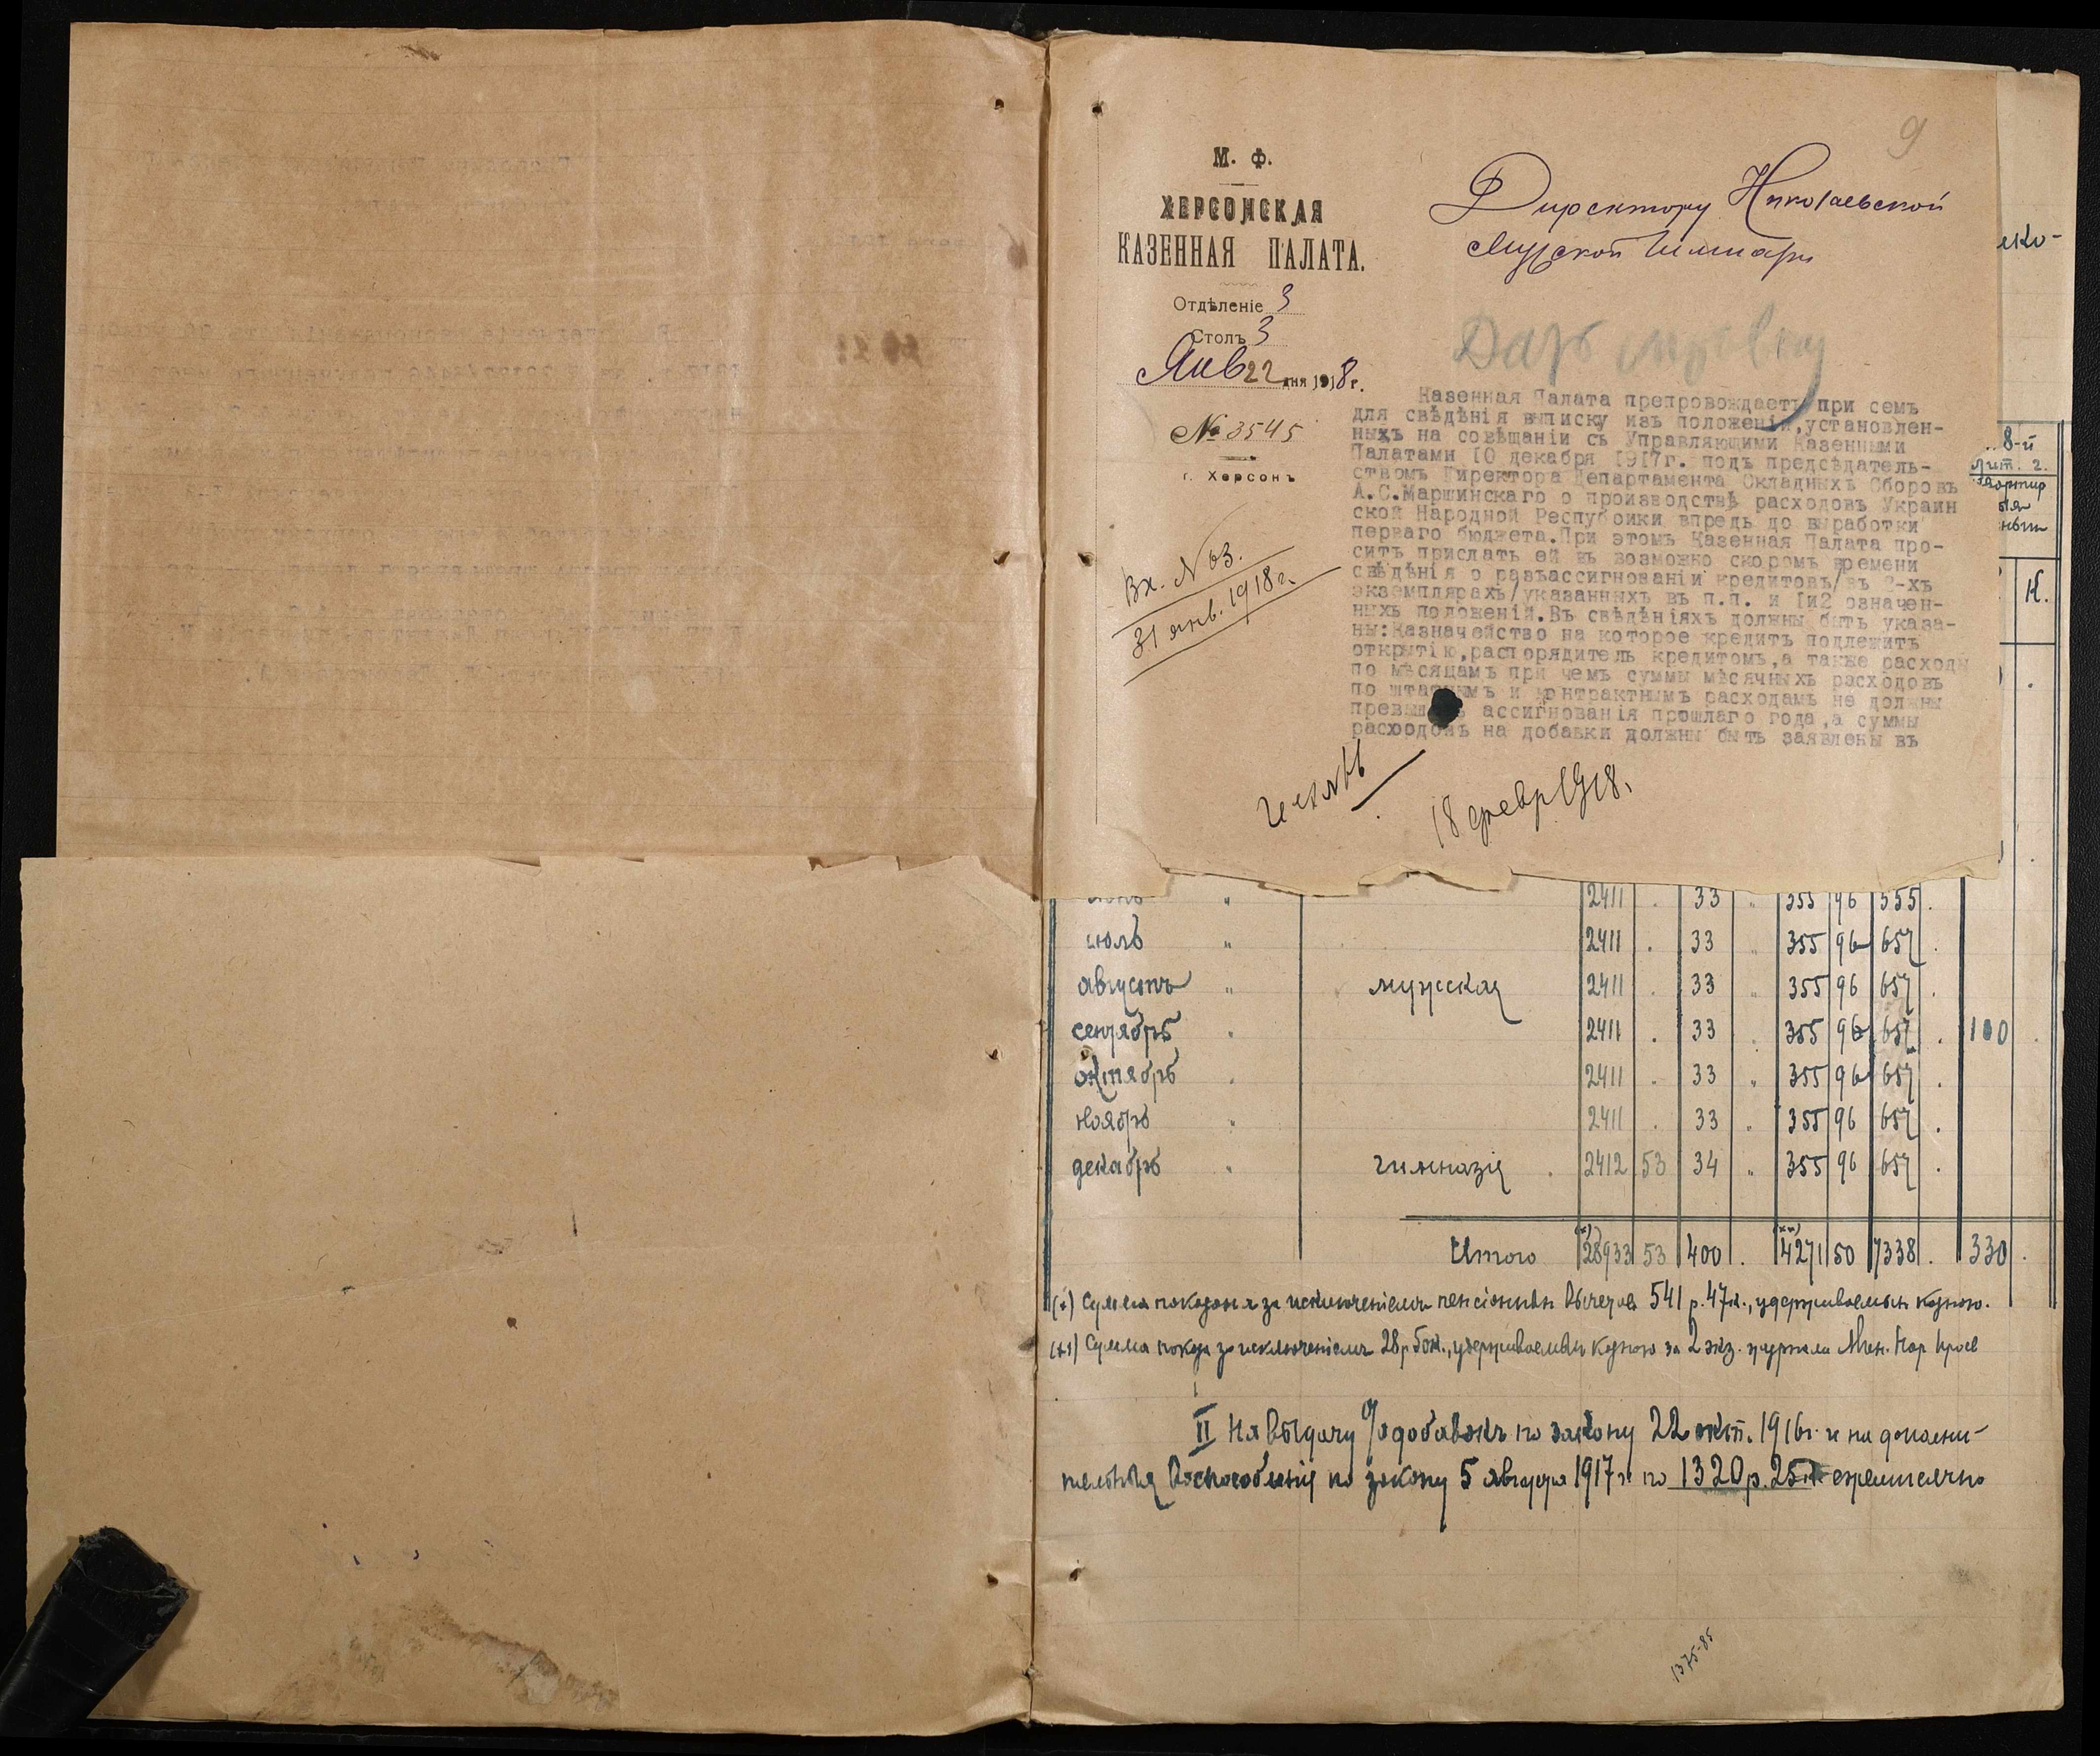 9
М. Ф.
ХЕРСОНСКАЯ
КАЗЕННАЯ ПАЛАТА.
Отдѣленіе 3
Столъ 3
Янв 22 дня 1918 г.
№ 3545
г. Херсонъ
Вх. № 63.
31 янв. 1918 г.
Директору Николаевской
Казенная Палата препровождаетъ при семъ
для свѣдѣнія выписку изъ положеній,установлен-
ныхъ на совѣщаніи съ Управляющими Казенными
Палатами 10 декабря 1917г. подъ предсѣдатель-
ствомъ Директора Департамента Окладныхъ Сборовъ
А.С.Маршинскаго о производствѣ расходовъ Украин
ской Народной Республики впредь до выработки
перваго бюджета.При этомъ Казенная Палата про-
ситъ прислать ей въ возможно скоромъ времени
свѣдѣнія о разъассигнованіи кредитовъ/въ 2-хъ
экземплярахъ/указанныхъ въ п.п. и 1и2 означен-
ныхъ положеній.Въ свѣдѣніяхъ должны быть указа-
ны:Казначейство на которое кредитъ подлежитъ
открытію,распорядитель кредитомъ,а также расходы
по мѣсяцамъ при чемъ суммы мѣсячныхъ расходовъ
по штатнымъ и контрактнымъ расходамъ не должны
превышать ассигнованія прошлаго года,а суммы
расходовъ на добавки должны быть заявлены въ
18 февр 1918.
8-й
лит. 2.
К.
2411 . 33 " 355 96 555 .
июль " 2411 . 33 " 355 96 657 .
августъ " мужская 2411 . 33 " 355 96 657 .
сентябрь " 2411 . 33 " 355 96 657 . 100 .
октябрь " 2411 . 33 " 355 96 657 .
ноябрь " 2411 . 33 " 355 96 657 .
декабрь " гимназія . 2412 53 34 " 355 96 657 .
Итого 28933 53 400 . 4271 50 7338 . 330 .
(х) Сумма показана за исключеніемъ пенсіонныхъ вычетовъ 541 р. 47к., удерживаемыхъ казною.
Сумма показ за исключеніемъ 28р 50к., удерживаемыхъ казною за 2 экз. журнала Мин. Нар Просв
II На выдачу % добавокъ по закону 22 окт. 1916г. и на дополни-
тельныя по закону 5 августа 1917 г. по 1320 р. 25 к. ежемесячно
1375-85